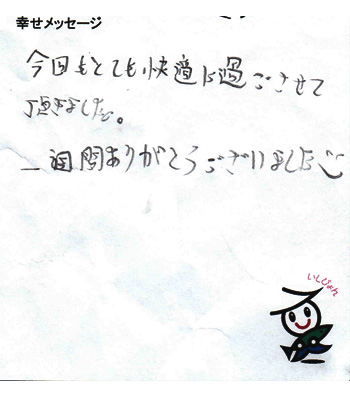 幸せメッセージ
今回もとても快適に過ごさせて
頂きました。
一週間ありがとうございました
いしぴょん